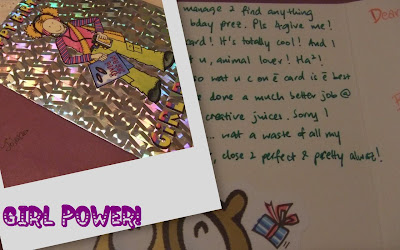 Dear
manage 2 find anything
bday prez. Pls 4give me!
ard! It's totally cool! And I
t u, animal lover! Ha²!
o wat u c on ē card is ē best
e done a much better job @
creative juices. Sorry I
... wat a waste of all my
, close 2 perfect & pretty always!
GIRL
GIRL POWER!